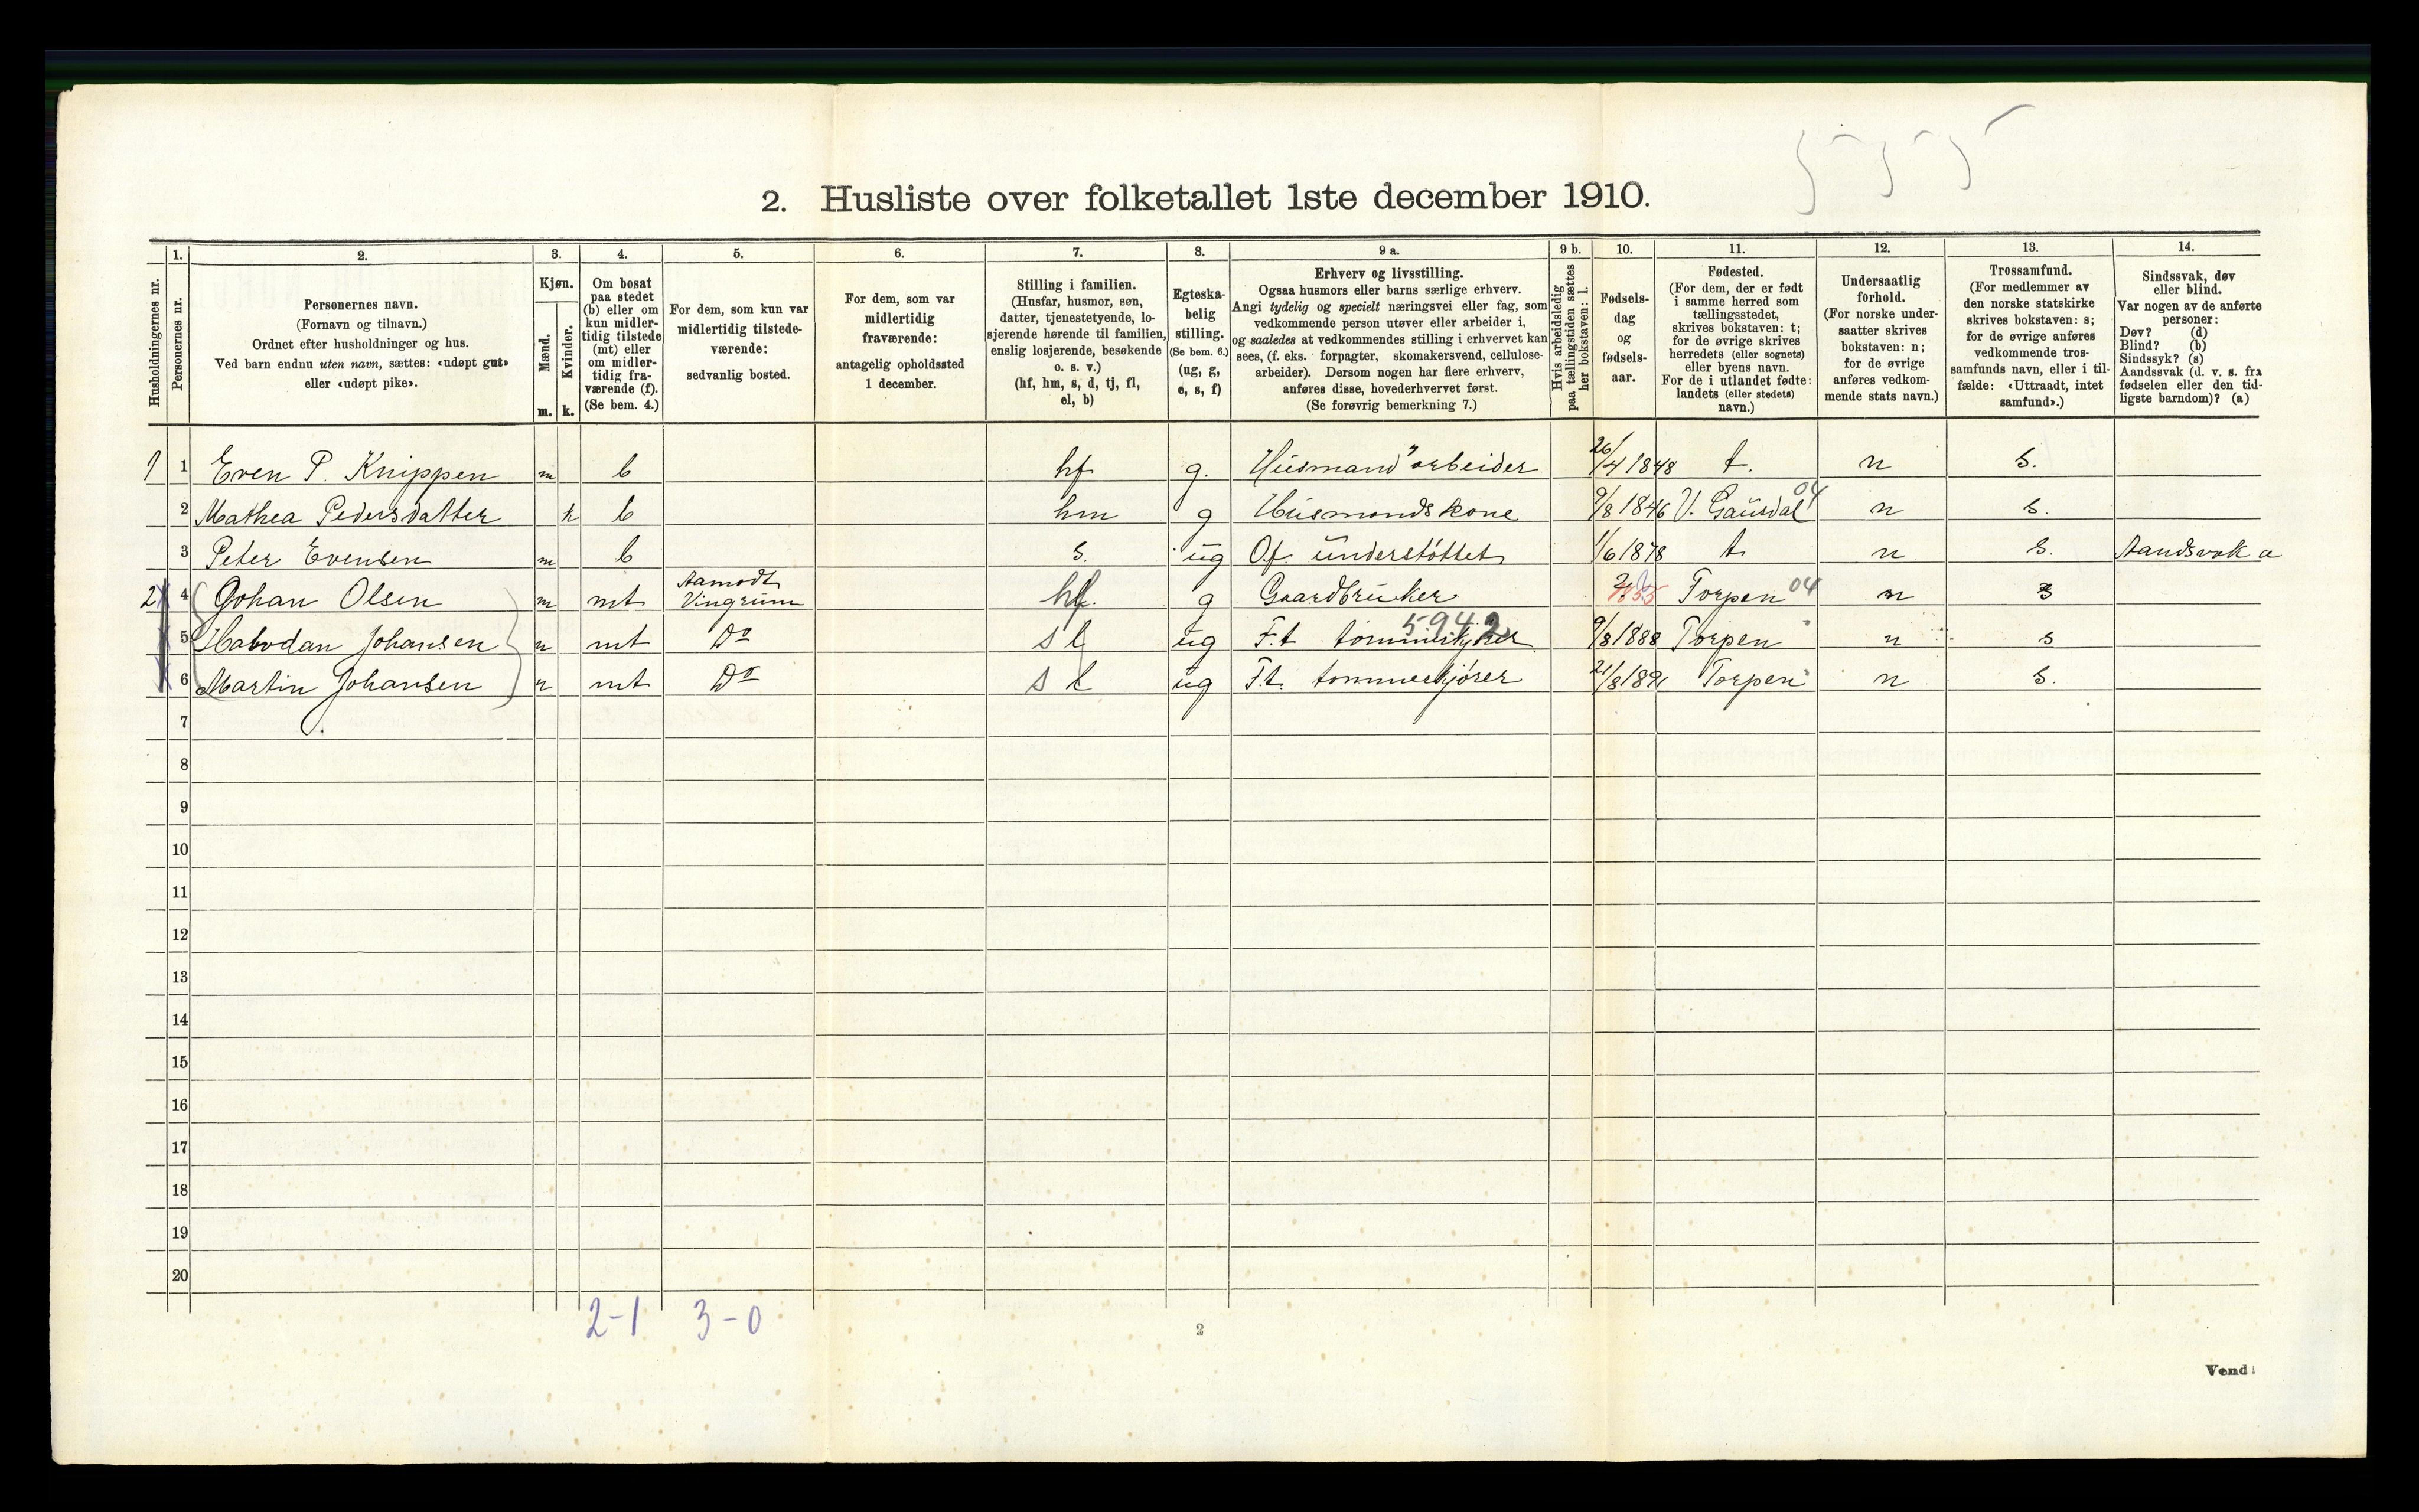 5 5 5
2. Husliste over folketallet 1ste december 1910.
Husholdningernes nr.
1.
Personernes nr.
2.
Personernes navn.
(Fornavn og tilnavn.)
Ordnet efter husholdninger og hus.
Ved barn endnu uten navn, sættes: «udøpt gut»
eller «udøpt pike».
3.
Kjøn.
Mænd.
Kvinder.
m. k.
4.
Om bosat
paa stedet
(b) eller om
kun midler-
tidig tilstede
(mt) eller
om midler-
tidig fra-
værende (f).
(Se bem. 4.)
5.
For dem, som kun var
midlertidig tilstede-
værende:
sedvanlig bosted.
6.
For dem, som var
midlertidig
fraværende:
antagelig opholdssted
1 december.
7.
Stilling i familien.
(Husfar, husmor, søn,
datter, tjenestetyende, lo-
sjerende hørende til familien,
enslig losjerende, besøkende
o. s. v.)
(hf, hm, s, d, tj, fl,
el, b)
8.
Egteska-
belig
stilling.
(Se bem. 6.)
(ug, g,
e, s, f)
9 a.
Erhverv og livsstilling.
Ogsaa husmors eller barns særlige erhverv.
Angi tydelig og specielt næringsvei eller fag, som
vedkommende person utøver eller arbeider i,
og saaledes at vedkommendes stilling i erhvervet kan
sees, (f. eks. forpagter, skomakersvend, cellulose-
arbeider). Dersom nogen har flere erhverv,
anføres disse, hovederhvervet først.
(Se forøvrig bemerkning 7.)
9 b.
Hvis arbeidsledig
paa tællingstiden sættes
her bokstaven: l.
10.
Fødsels-
dag
og
fødsels-
aar.
11.
Fødested.
(For dem, der er født
i samme herred som
tællingsstedet,
skrives bokstaven: t;
for de øvrige skrives
herredets (eller sognets)
eller byens navn.
For de i utlandet fødte:
landets (eller stedets)
navn.)
12.
Undersaatlig
forhold.
(For norske under-
saatter skrives
bokstaven: n;
for de øvrige
anføres vedkom-
mende stats navn.)
13.
Trossamfund.
(For medlemmer av
den norske statskirke
skrives bokstaven: s;
for de øvrige anføres
vedkommende tros-
samfunds navn, eller i til-
fælde: «Uttraadt, intet
samfund».)
14.
Sindssvak, døv
eller blind.
Var nogen av de anførte
personer:
Døv? (d)
Blind? (b)
Sindssyk? (s)
Aandssvak (d. v. s. fra
fødselen eller den tid-
ligste barndom)? (a)
1 1 Even P. Knippen m b hf g. Husmand "arbeider 26/4 1848 t. n s.
2 Mathea Pedersdatter k b hm g Husmandskone 9/8 1846 V. Gausdal 04 n s.
3 Peter Evensen m b s. ug Of. understöttet 1/6 1878 t n s. Aandsvak a
2 4 Johan Olsen m mt Aamodt Vingrum hf. g Gaardbruker Torpen 04 n s
5 Halvdan Johansen m mt Do s l ug F.t tömmerkjører 5942 9/8 1888 Torpen n s
6 Martin Johansen m mt Do s l ug F.t. tømmerkjører 21/8 1891 Torpen n s.
7
8
9
10
11
12
13
14
15
16
17
18
19
20
2-1 3-0
2
Vend!